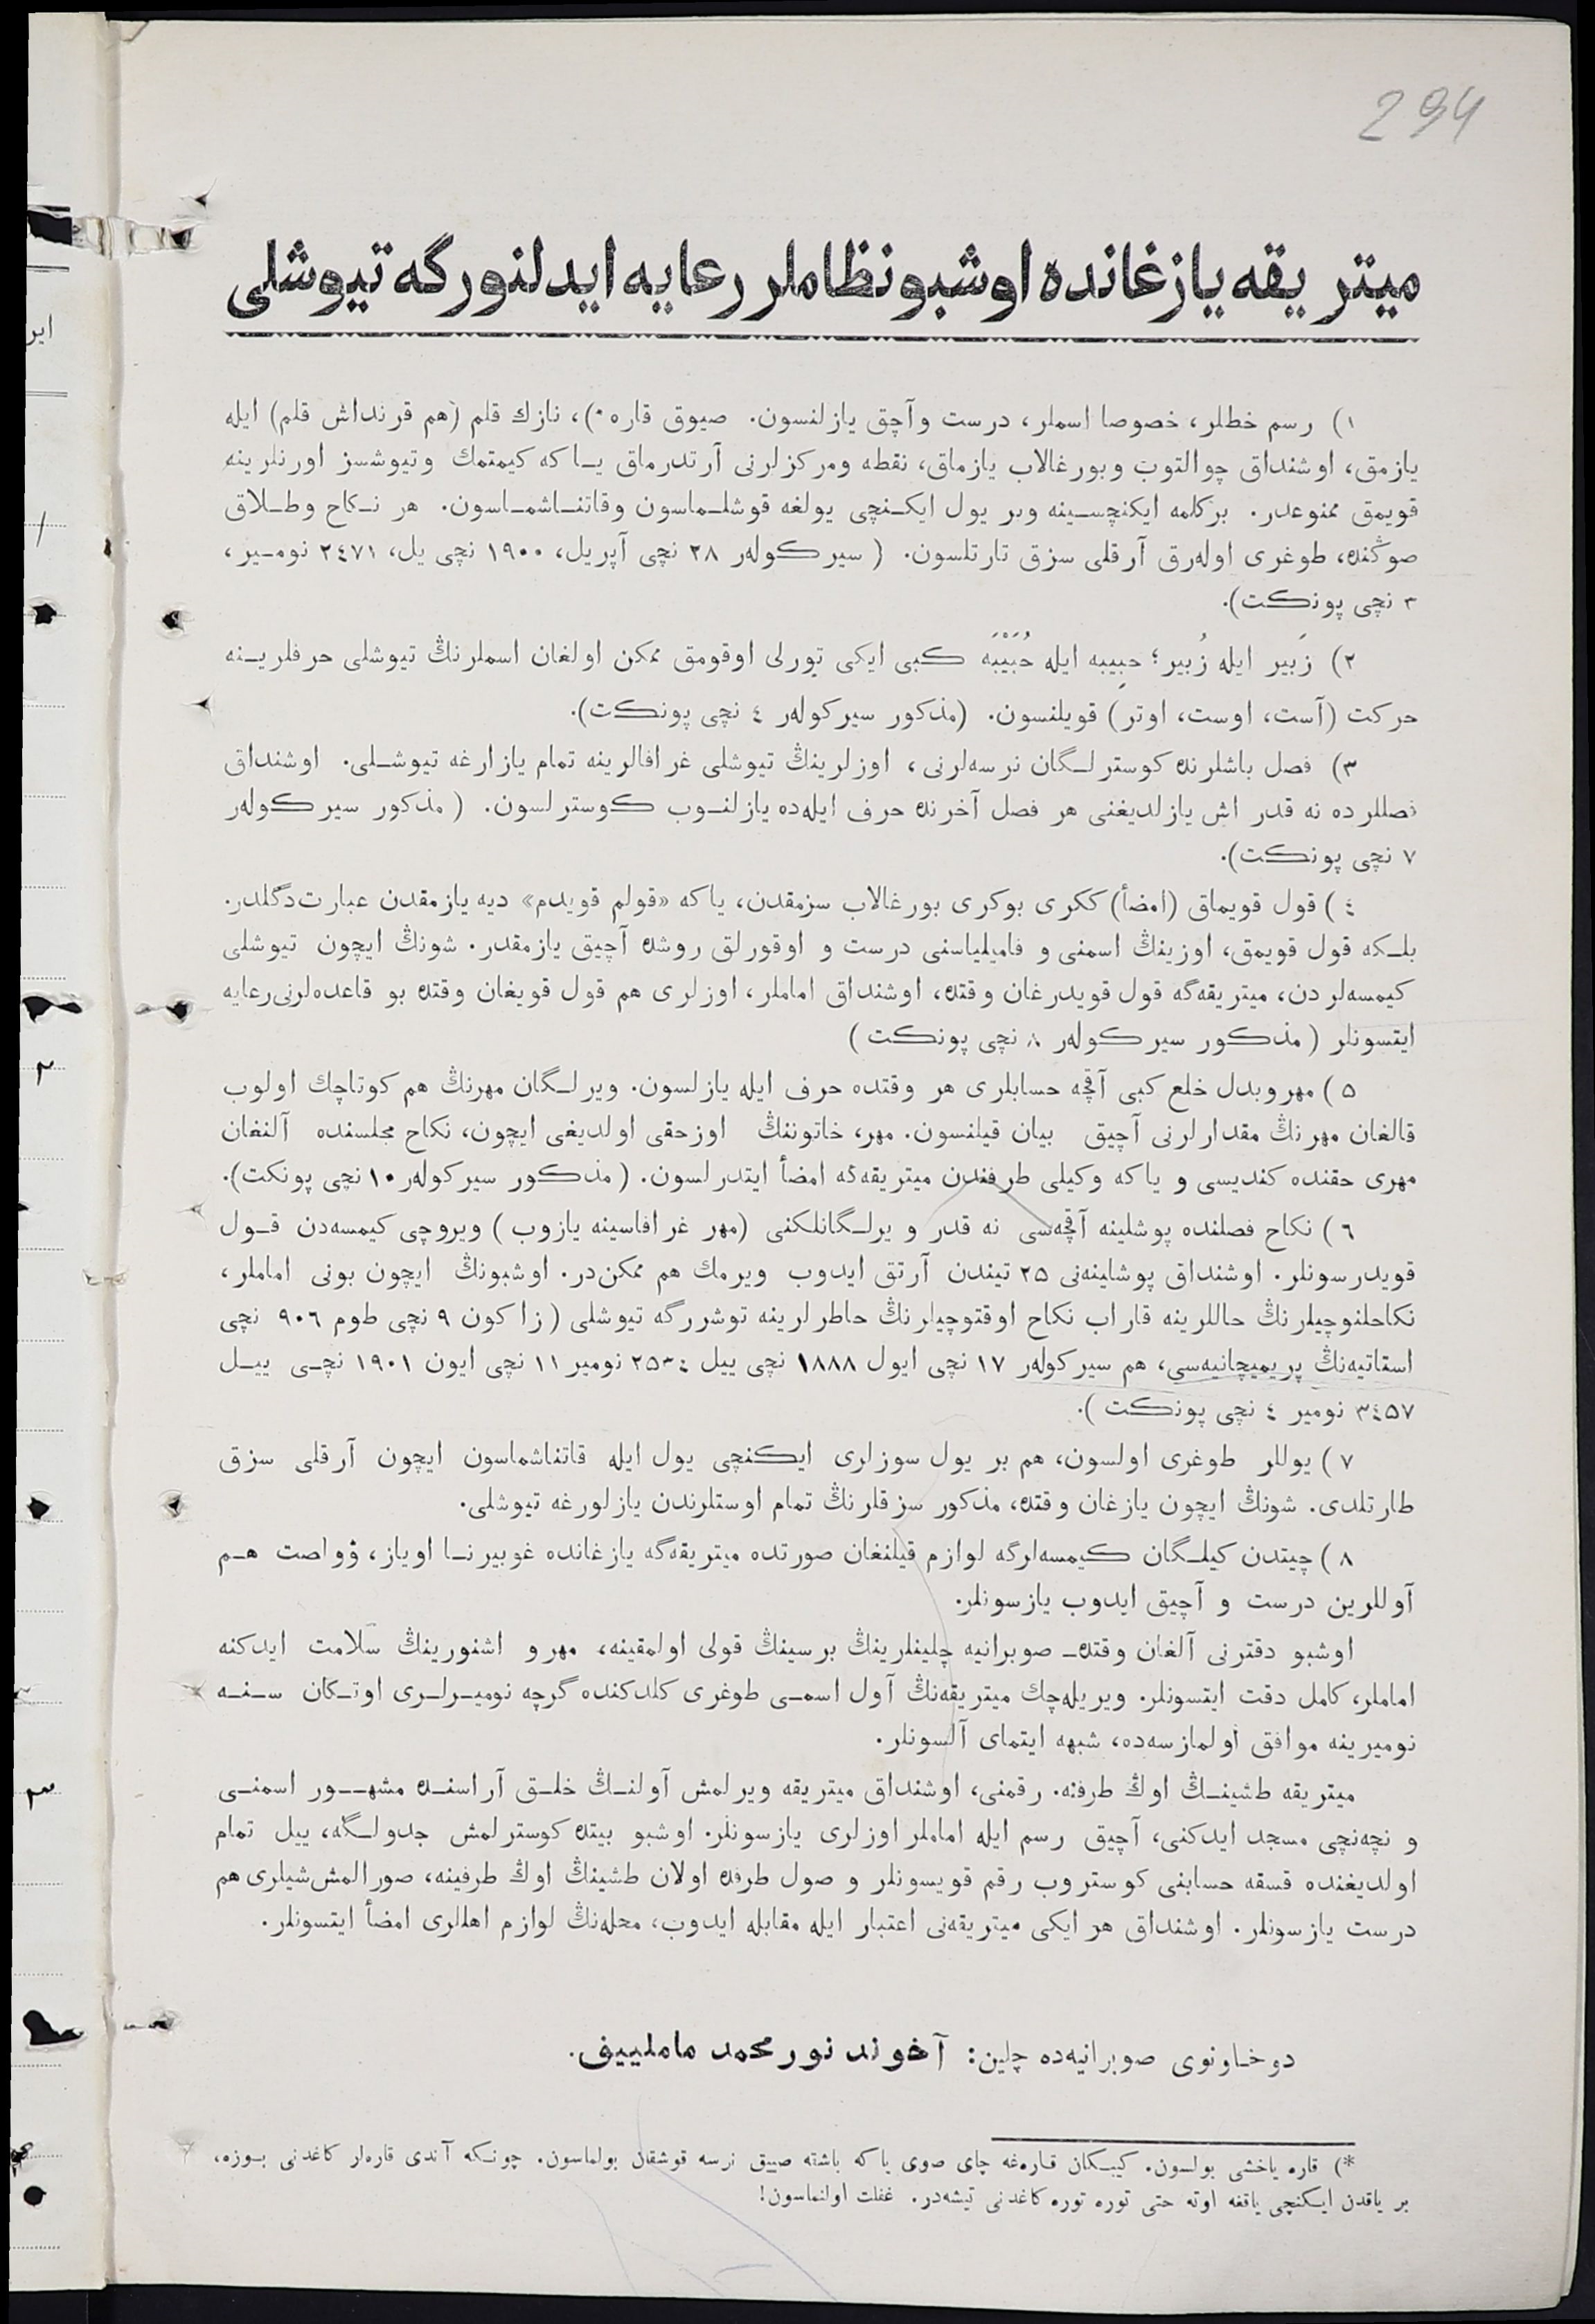 294
ميتريقه يازغانده اوشبو نظاملر رعايه ايدلنورگه تيوشلى
١) رسم خطلر، خصوصا اسملر، درست وآچق يازلنسون. صيوق قاره *)، نازك قلم (هم قرنداش قلم) ايله
يازمق، اوشنداق چوالتوب وبورغالاب يازماق، نقطه ومركزلرنى آرتدرماق ياكه كيمتمك وتيوشسز اورنلرينه
قويمق ممنوعدر. بركلمه ايكنچسينه وبر يول ايكنچى يولغه قوشلماسون وقاتناشماسون. هر نكاح وطلاق
صوڭنده، طوغرى اولەرق آرقلى سزق تارتلسون. (سيركولەر ٢٨ نچى آپريل، ١٩٠٠ نچى يل، ٢٤٧١ نومير،
٣ نچى پونكت).
٢) زَبير ايله زُبير؛ حبِيبه ايله حُبَيْبَه كبى ايكى تورلى اوقومق ممكن اولغان اسملرنڭ تيوشلى حرفلرينه
حركت (آست، اوست، اوتر) قويلنسون. (مذكور سيركولەر ٤ نچى پونكت).
٣) فصل باشلرنده كوسترلگان نرسەلرنى، اوزلرينڭ تيوشلى غرافالرينه تمام يازارغه تيوشلى. اوشنداق
فصللرده نه قدر اش يازلديغنى هر فصل آخرنده حرف ايلەده يازلنوب كوسترلسون. (مذكور سيركولەر
٧ نچى پونكت).
٤) قول قويماق (امضأ) ككرى بوكرى بورغالاب سزمقدن، ياكه «قولم قويدم» ديه يازمقدن عبارت دگلدر.
بلكه قول قويمق، اوزينڭ اسمنى و فاميلياسنى درست و اوقورلق روشده آچيق يازمقدر. شونڭ ايچون تيوشلى
كيمسەلردن، ميتريقەگه قول قويدرغان وقتده، اوشنداق اماملر، اوزلرى هم قول قويغان وقتده بو قاعدەلرنى رعايه
ايتسونلر (مذكور سيركولەر ٨ نچى پونكت)
٥) مهر وبدل خلع كبى آقچه حسابلرى هر وقتده حرف ايله يازلسون. ويرلگان مهرنڭ هم كوتاچك اولوب
قالغان مهرنڭ مقدارلرنى آچيق بيان قيلنسون. مهر، خاتوننڭ اوزحقى اولديغى ايچون، نكاح مجلسنده آلنغان
مهرى حقنده كنديسى و ياكه وكيلى طرفندن ميتريقەگه امضأ ايتدرلسون. (مذكور سيركولەر ١٠ نچى پونكت).
٦) نكاح فصلنده پوشلينه آقچەسى نه قدر ويرلگانلكنى (مهر غرافاسينه يازوب) ويروچى كيمسەدن قول
قويدرسونلر. اوشنداق پوشلينەنى ٢٥ تيندن آرتق ايدوب ويرمك هم ممكن‌در. اوشبونڭ ايچون بونى اماملر،
نكاحلنوچيلرنڭ حاللرينه قاراب نكاح اوقتوچيلرنڭ خاطرلرينه توشررگه تيوشلى (زاكون ٩ نچى طوم ٩٠٦ نچى
استاتيەنڭ پريميچانيەسى، هم سيركولەر ١٧ نچى ايول ١٨٨٨ نچى ييل ٢٥٣٤ نومير ١١ نچى ايون ١٩٠١ نچى ييل
٣٤٥٧ نومير ٤ نچى پونكت).
٧) يوللر طوغرى اولسون، هم بر يول سوزلرى ايكنچى يول ايله قاتناشماسون ايچون آرقلى سزق
طارتلدى. شونڭ ايچون يازغان وقتده، مذكور سزقلرنڭ تمام اوستلرندن يازلورغه تيوشلى.
٨) چيتدن كيلگان كيمسەلرگه لوازم قيلنغان صورتده ميتريقەگه يازغانده غوبيرنا اوياز، ۋواصت هم
آوللرين درست و آچيق ايدوب يازسونلر.
اوشبو دفترنى آلغان وقتده صوبرانيه چلينلرينڭ برسينڭ قولى اولمقينه، مهر و اشنورينڭ سلامت ايدكنه
اماملر، كامل دقت ايتسونلر. ويريلەچك ميتريقەنڭ آول اسمى طوغرى كلدكنده گرچه نوميرلرى اوتكان سنه
نوميرينه موافق اولمازسەده، شبهه ايتماى آلسونلر.
ميتريقه طشينڭ اوڭ طرفنه. رقمنى، اوشنداق ميتريقه ويرلمش آولنڭ خلق آراسنده مشهور اسمنى
و نچەنچى مسجد ايدكنى، آچيق رسم ايله اماملر اوزلرى يازسونلر. اوشبو بيتده كوسترلمش جدولگه، ييل تمام
اولديغنده قسقه حسابنى كوستروب رقم قويسونلر و صول طرفده اولان طشينڭ اوڭ طرفينه، صورالمش شيلرى هم
درست يازسونلر. اوشنداق هر ايكى ميتريقەنى اعتبار ايله مقابله ايدوب، محلەنڭ لوازم اهللرى امضأ ايتسونلر.
دوخاونوى صوبرانيەده چلين: آخوند نورمحمد ماملييف.
*) قاره ياخشى بولسون. كيبكان قارەغه چاى صوى ياكه باشته صييق نرسه قوشقان بولماسون. چونكه آندى قارەلر كاغدنى بوزه،
بر ياقدن ايكنچى ياقغه اوته حتى توره توره كاغدنى تيشەدر. غفلت اولنماسون!